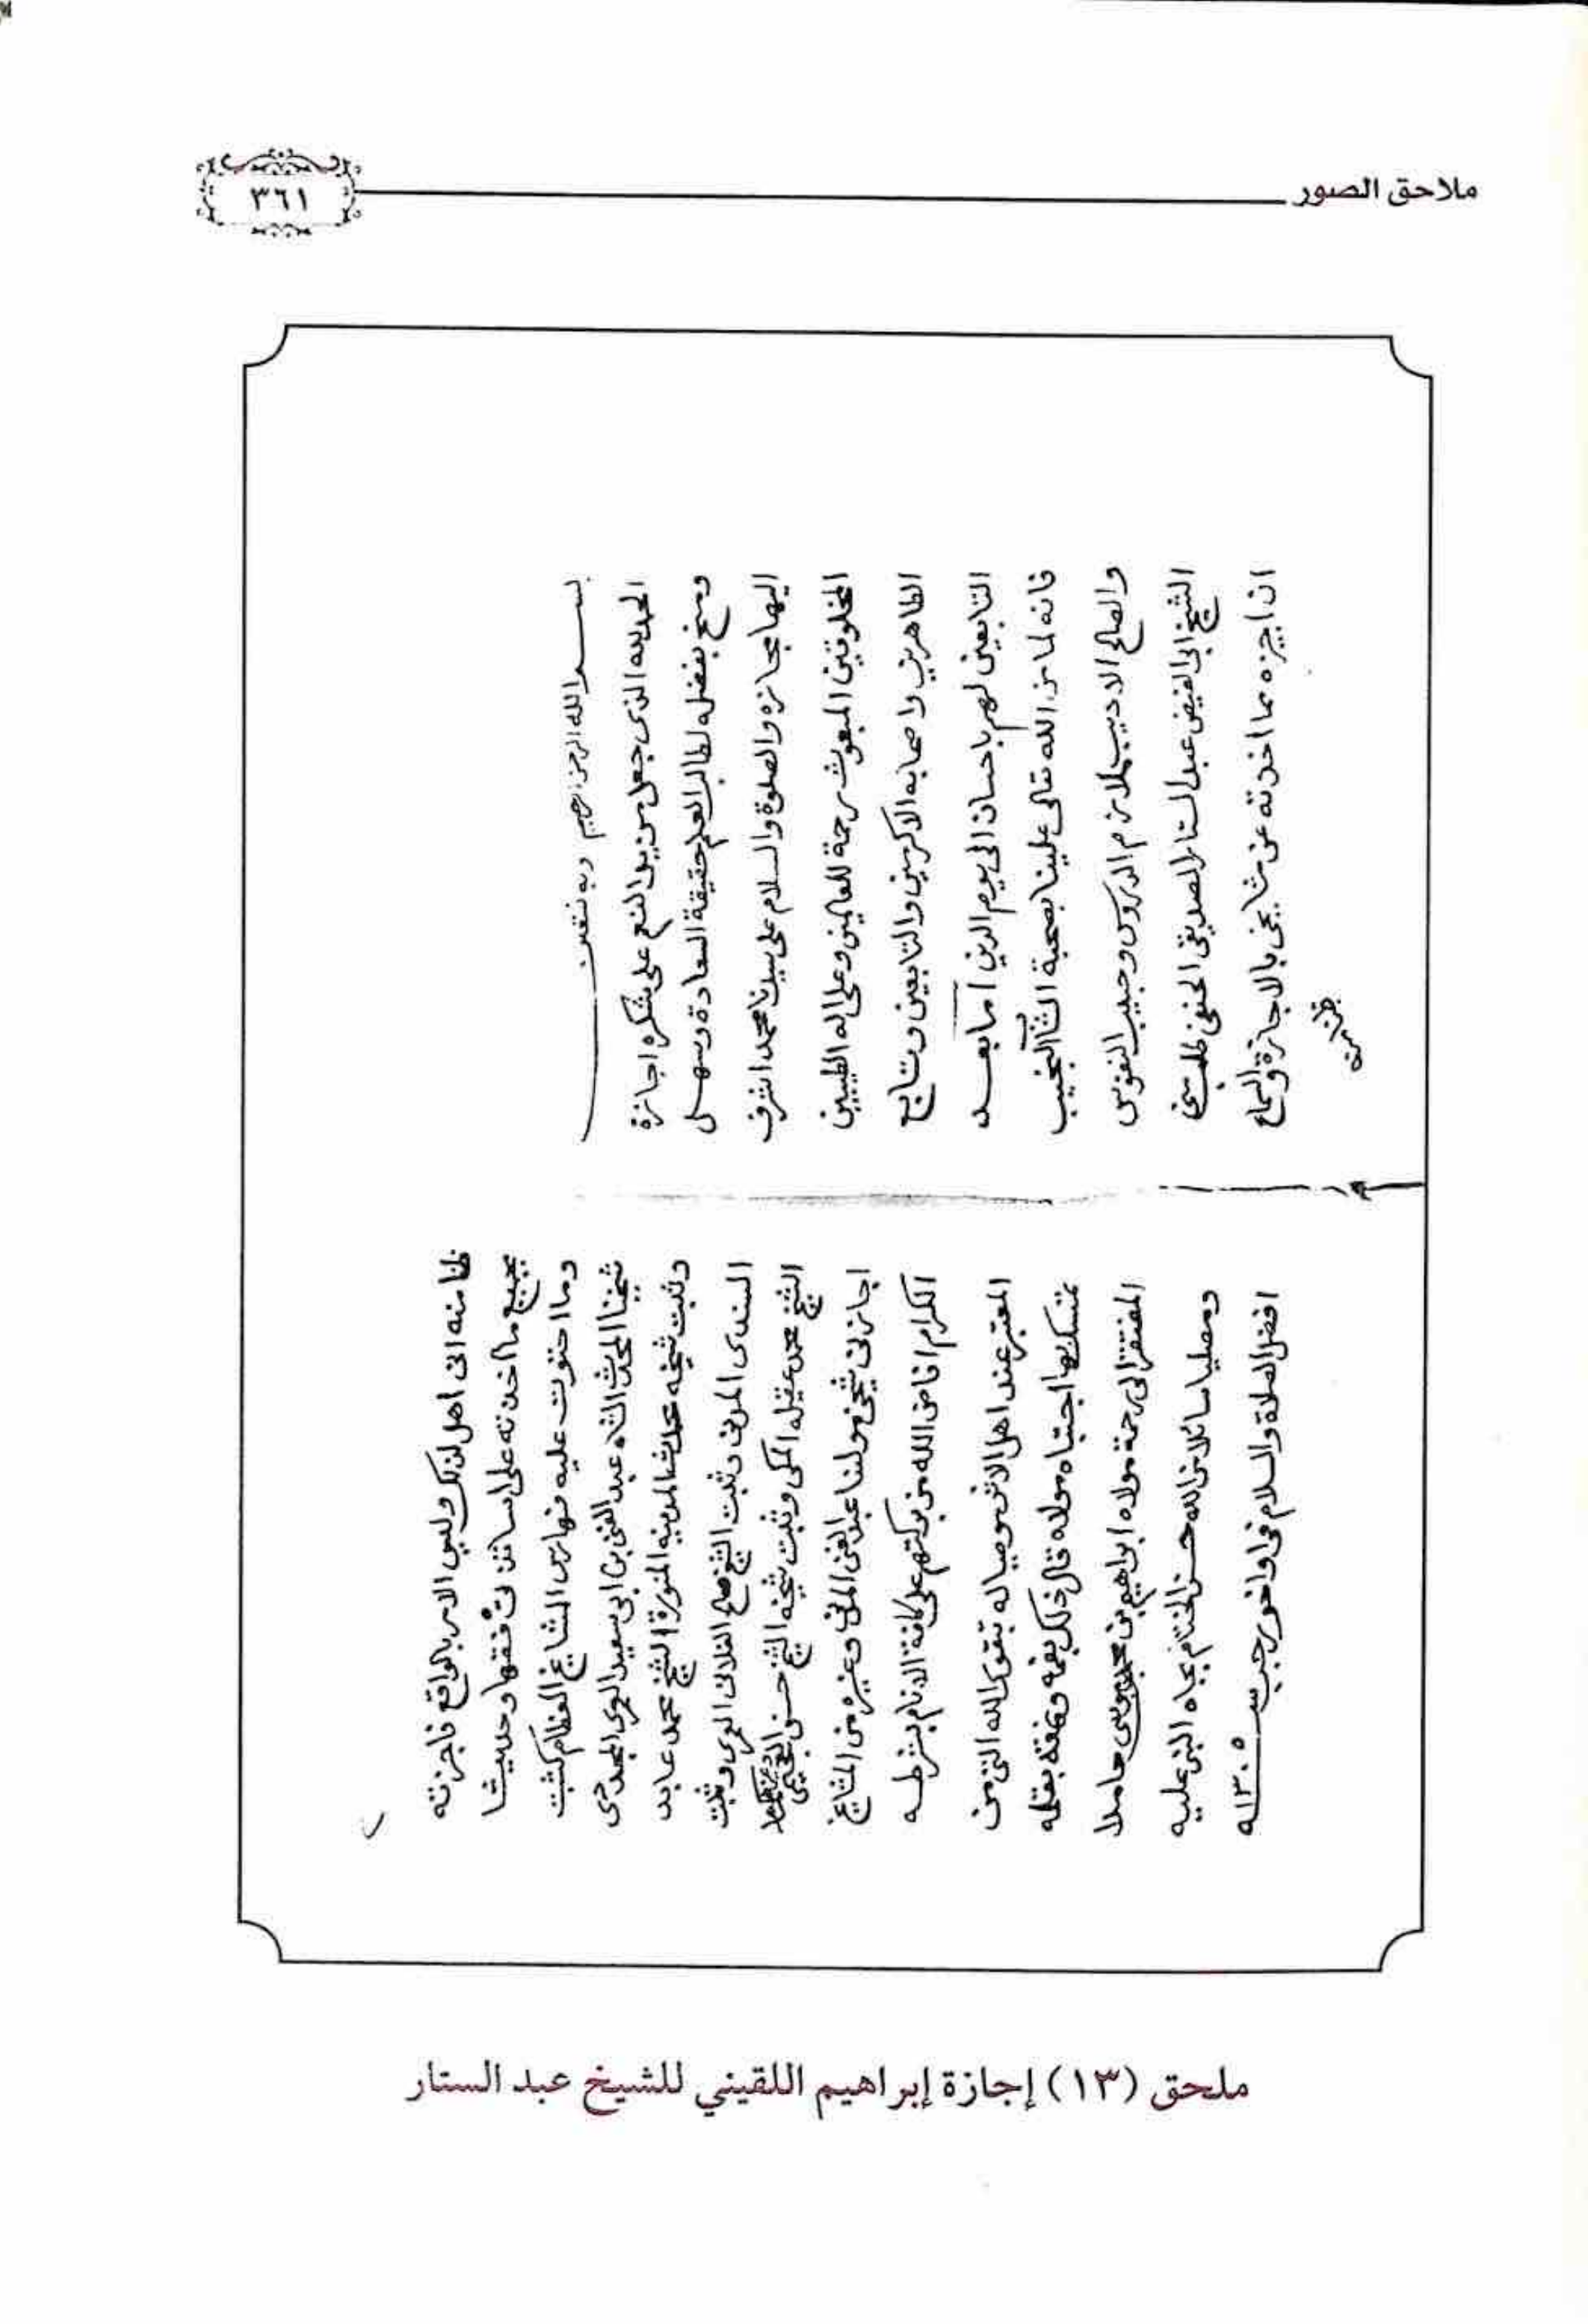 ملاحق الصور
٣٦١
بسم الله الرحمن الرحيم وبه نقتي
الحمد لله الذي جعل مزيد النعم على شكره اجازة
ومنح بفضله لطالب العلم حقيقة السعادة وسهل
اليها مجازه والصلوة والسلام على سيدنا محمد اشرف
المخلوقين المبعوث رحمة للعالمين وعلى اله الطيبين
الطاهرين واصحابه الاكرمين والتابعين وتابع
التابعين لهم باحسان الى يوم الدين اما بعد
فانه لما من الله تعالى علينا بصحبة الشاب النجيب
والصالح الاديب ملازم الدروس وحبيب النفوس
الشيخ ابي الفيض عبد الستار الصديقي الحنفي طلب مني
ان اجيزه مما اخذته عن مشايخي بالاجازة والسماع
ظنا منه
ظنا منه اني اهل لذلك وليس الامر بالواقع فاجزته
بجميع ما اخذته على اساتذتي فقها وحديثا
وما احتوت عليه فهارس المشايخ العظام كثبت
شيخنا المحدث الشاه عبد الغني بن ابي سعيد العمري المجددي
وثبت شيخه محدث المدينه المنورة الشيخ محمد عابد
السندي المدني وثبت الشيخ صالح الفلاني العمري وثبت
الشيخ محمد عقيله المكي وثبت شيخه الشيخ حسن العجيمي
اجازني شيخي مولنا عبد الغني المدني وغيره من المشايخ
الكرام افاض الله من بركتهم على كافة الانام بشرطه
المعتبر عند اهل الاثر موصيا له بتقوى الله التي من
تمسك بها اجتباه مولاه قال ذلك بفمه ونمقه بقلمه
المفتقر الى رحمة مولاه ابراهيم بن محمد موسى حامدا
ومصليا سائلا من الله حسن الختام بجاه النبي عليه
افضل الصلاة والسلام في اواخر رجب سنة ١٣٠٥ه
ملحق (١٣) إجازة إبراهيم اللقيني للشيخ عبد الستار